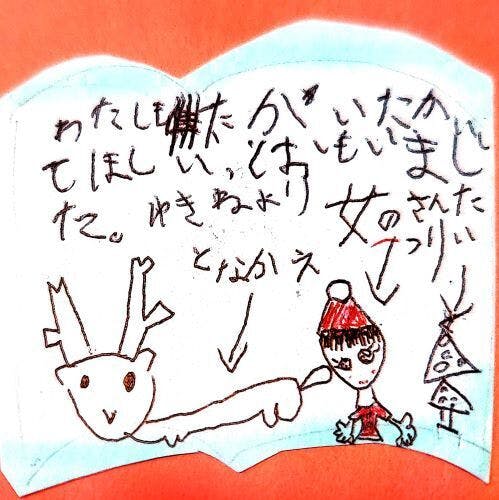 わたしもたがいたか
てほしいっとおもいまし
た。ゆきねより
女のさんた
つりい
となかえ